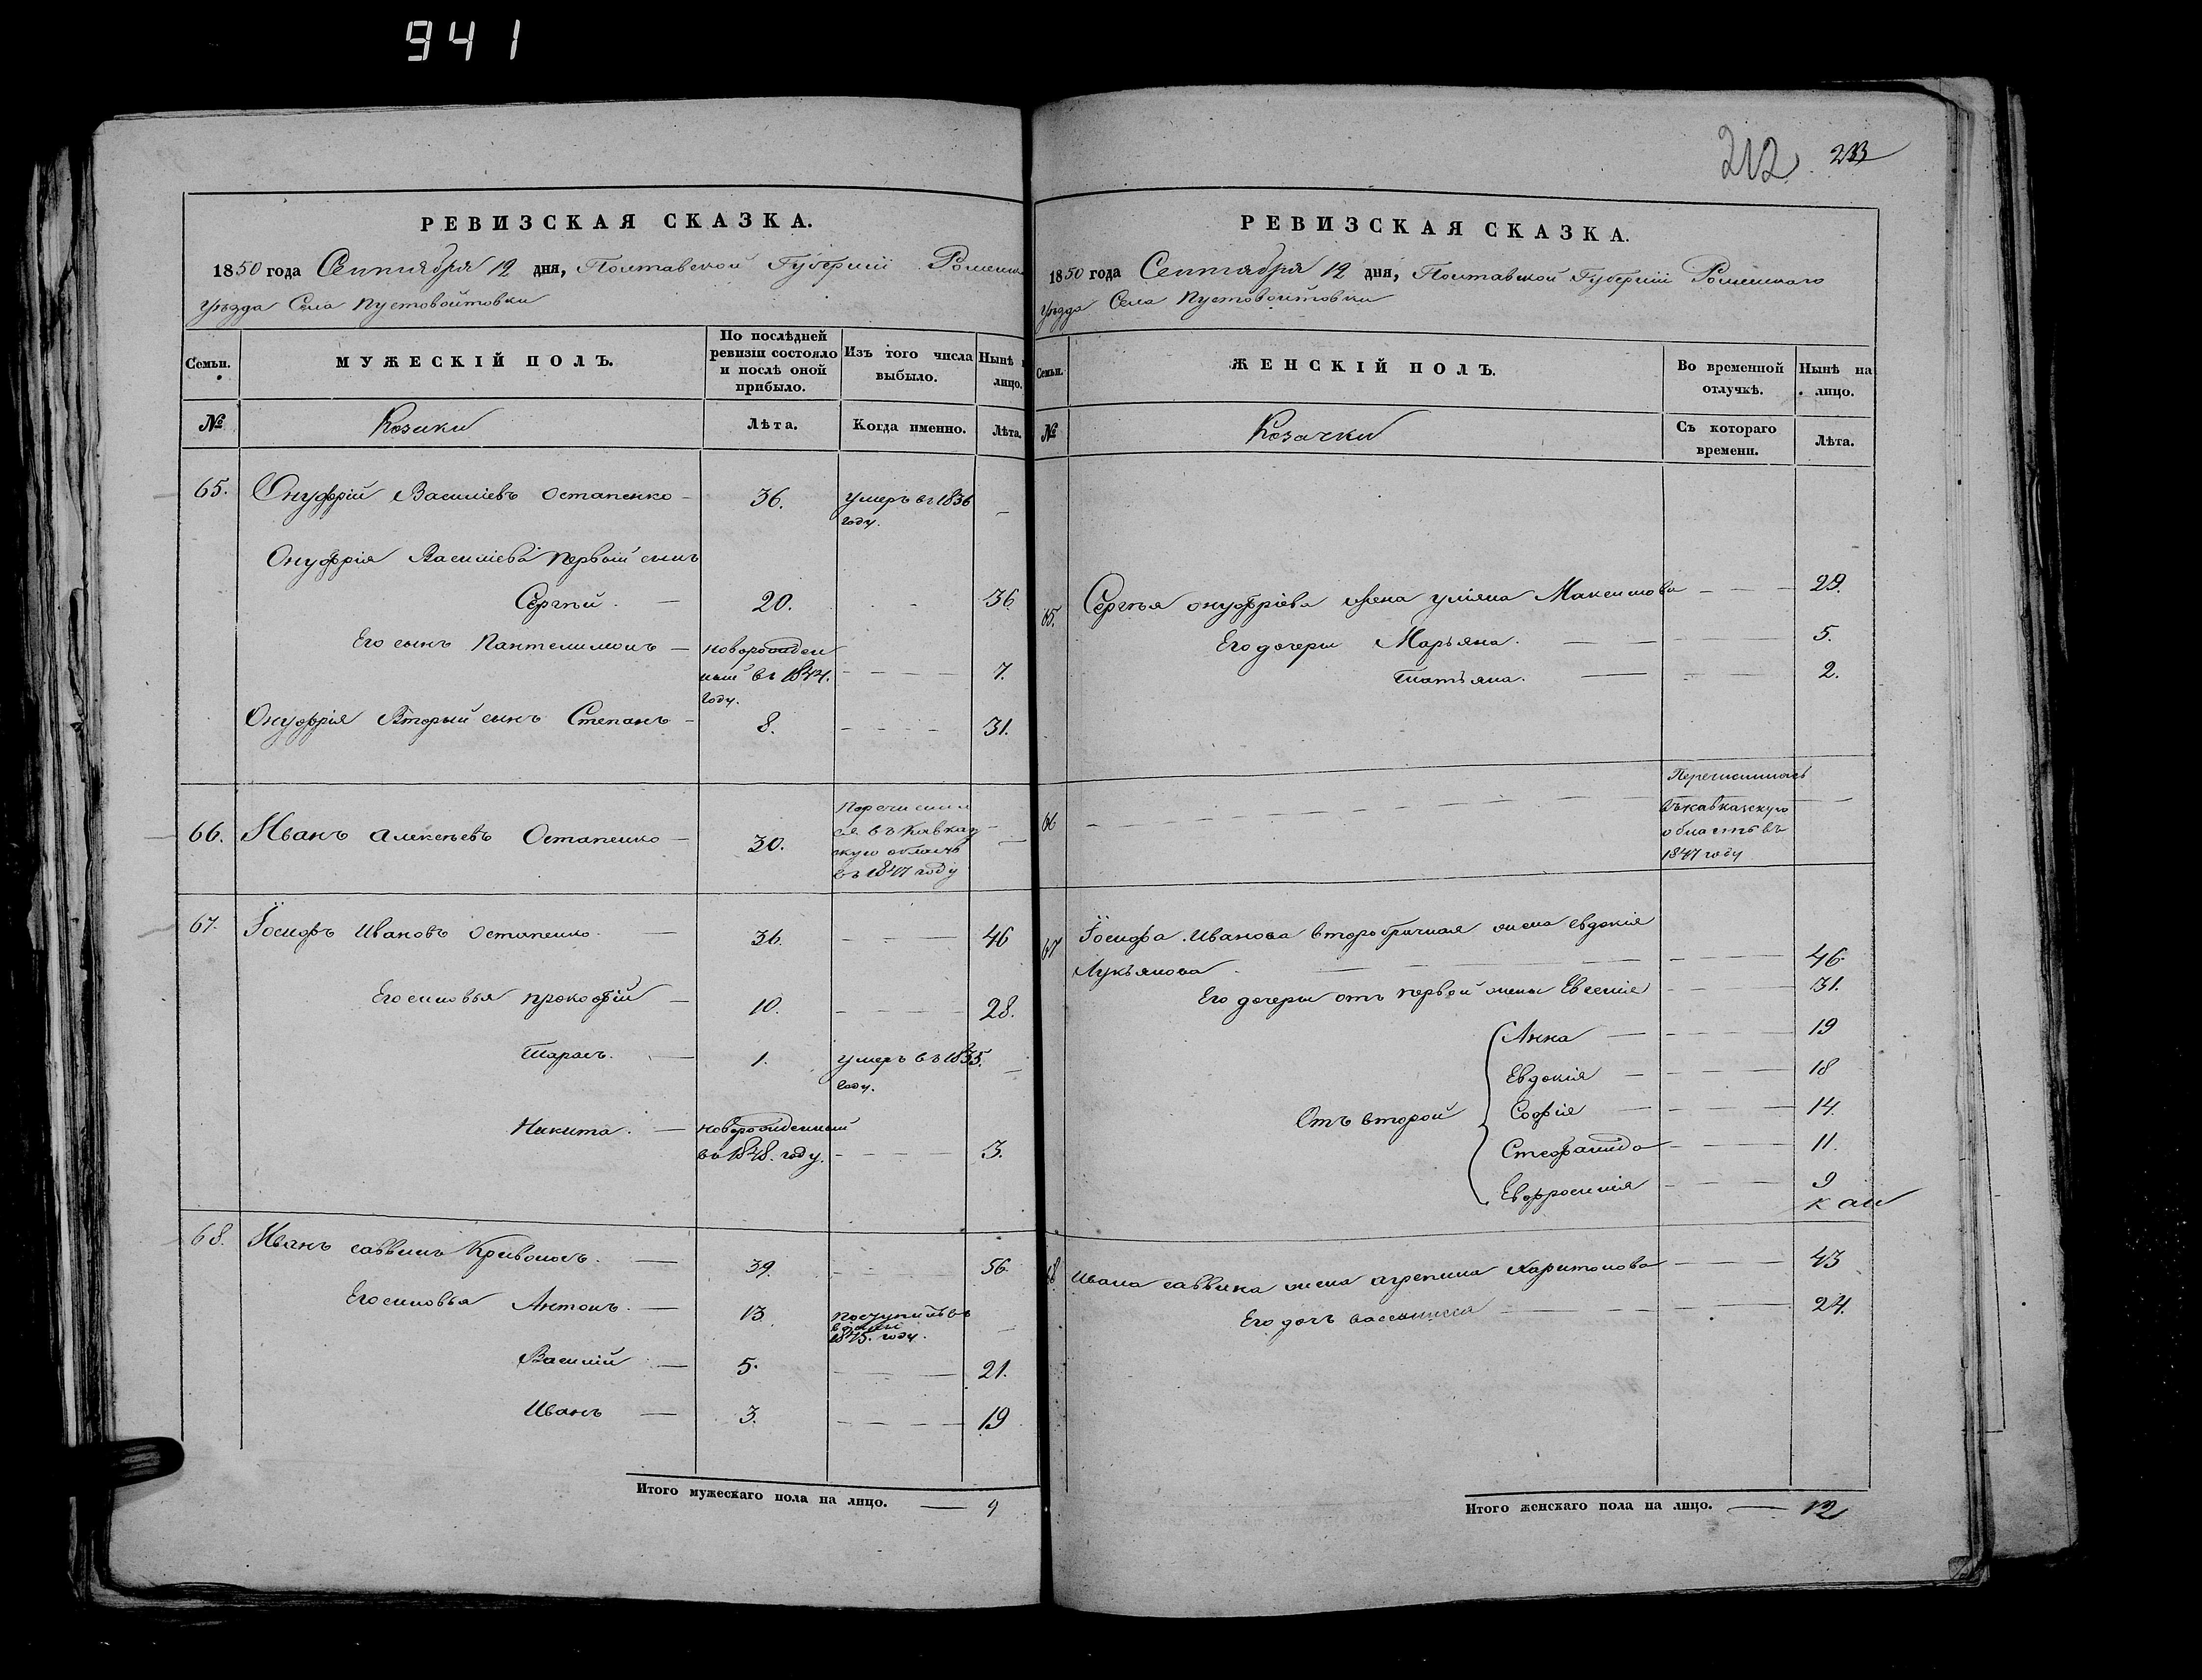 941
РЕВИЗСКАЯ СКАЗКА.
1850 года Сентября 12 дня, Полтавской Губерніи Роменск
Уѣзда Села Пустовойтовки
Семьи. МУЖЕСКІЙ ПОЛЪ. По послѣдней ревизіи состояло и послѣ оной прибыло. Изъ того числа выбыло. Нынѣ лицо.
№ Козаки Лѣта. Когда именно. Лѣта.
65. Онуфрій Василіевъ Остапенко 36. умеръ в 1836 году. —
Онуфрія Василіева первый сынъ
Сергѣй. — 20. — 36
Его сынъ Пантелимонъ — новорожден
ный въ 1844. году. 7.
Онуфрія Вторый сынъ Степанъ 8. 31.
66. Иванъ Алексѣевъ Остапенко 30. Перечислил
ся въ Кавказ
скую область
въ 1847 году
67. Іосифъ Ивановъ Остапенко. — 36. 46
Его сыновья Прокофій — 10. 28.
Тарасъ. — 1. умеръ въ 1835. году. —
Никита. — новорожденный
въ 1848. году. 3.
68. Иванъ саввинъ Кривонось. — 39. 56
Его сыновья Антонъ. — 13 поступилъ въ
1845. году.
Василій — 5. 21.
Иванъ — 3. 19
Итого мужескаго пола на лицо. — 9
212 213
РЕВИЗСКАЯ СКАЗКА.
1850 года Сентября 12 дня, Полтавской Губерніи Роменскаго
Уѣзда Села Пустовойтовки
Семьи. ЖЕНСКІЙ ПОЛЪ. Во временной отлучкѣ. Нынѣ на лицо.
№ Козачки Съ котораго времени. Лѣта.
65. Сергѣя онуфріева жена уліяна Максимова 29.
Его дочери Марьяна. 5.
Татьяна. 2.
66 Перечислилась
въ кавказскую
область въ
1847 году
67 Іосифа Иванова второбрачная жена евдокія
Лукьянова 46.
Его дочери отъ первой жены Евгенія 31.
Анна 19
Евдокія 18
Отъ второй Софія 14.
Стефанида 11.
Евфросинія 9
68 Ивана саввина жена агрепина Харитонова 43
Его дочь 24.
Итого женскаго пола на лицо. — 12